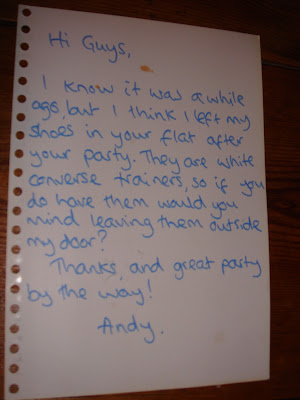 Hi Guys,
I know it was a while
ago, but I think I left my
shoes in your flat after
your party. They are white
converse trainers, so if you
do have them would you
mind leaving them outside
my door?
Thanks, and great party
by the way!
Andy.